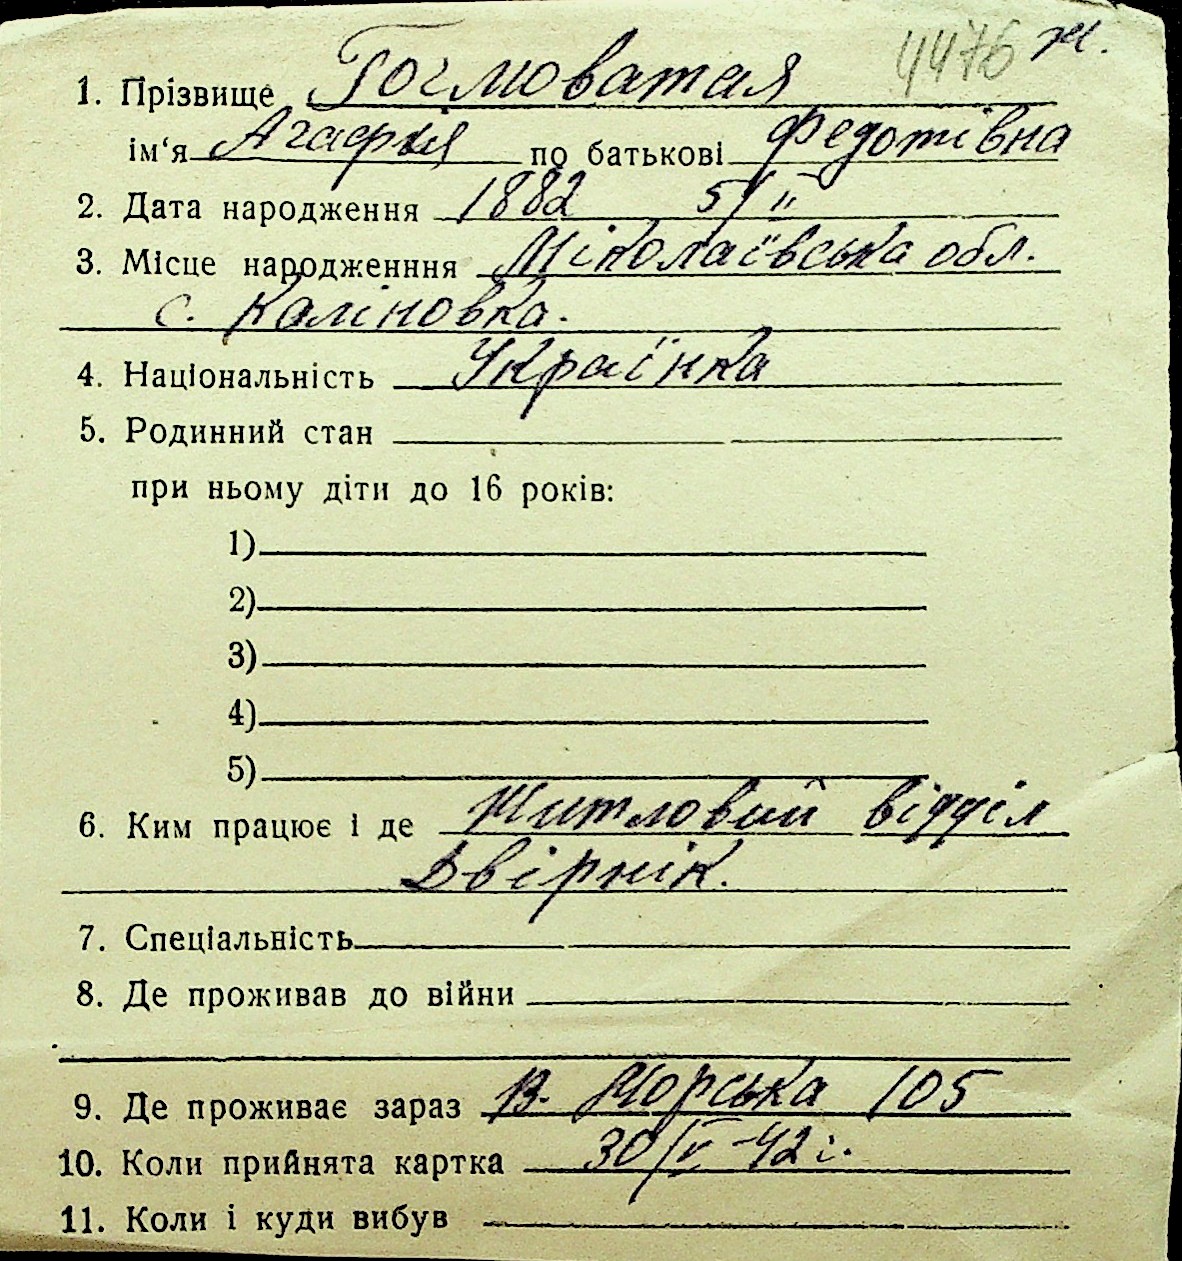 4476 ж.
1. Прізвище Гогловатая
ім‘я Агафія по батькові Федотівна
2. Дата народження 1882 5/II
3. Місце народженння Міколаївська обл.
с. Каліновка.
4. Національність Українка
5. Родинний стан
при ньому діти до 16 років:
1)
2)
3)
4)
5)
6. Ким працює і де Житловий відділ
Двірнік.
7. Спеціальність
8. Де проживав до війни
9. Де проживає зараз В. Морська 105
10. Коли прийнята картка 30/V-42 г.
11. Коли і куди вибув